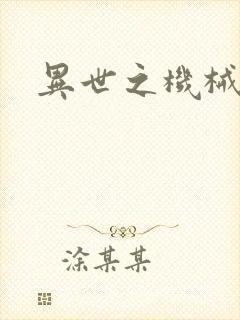 異世之機械
涂某某